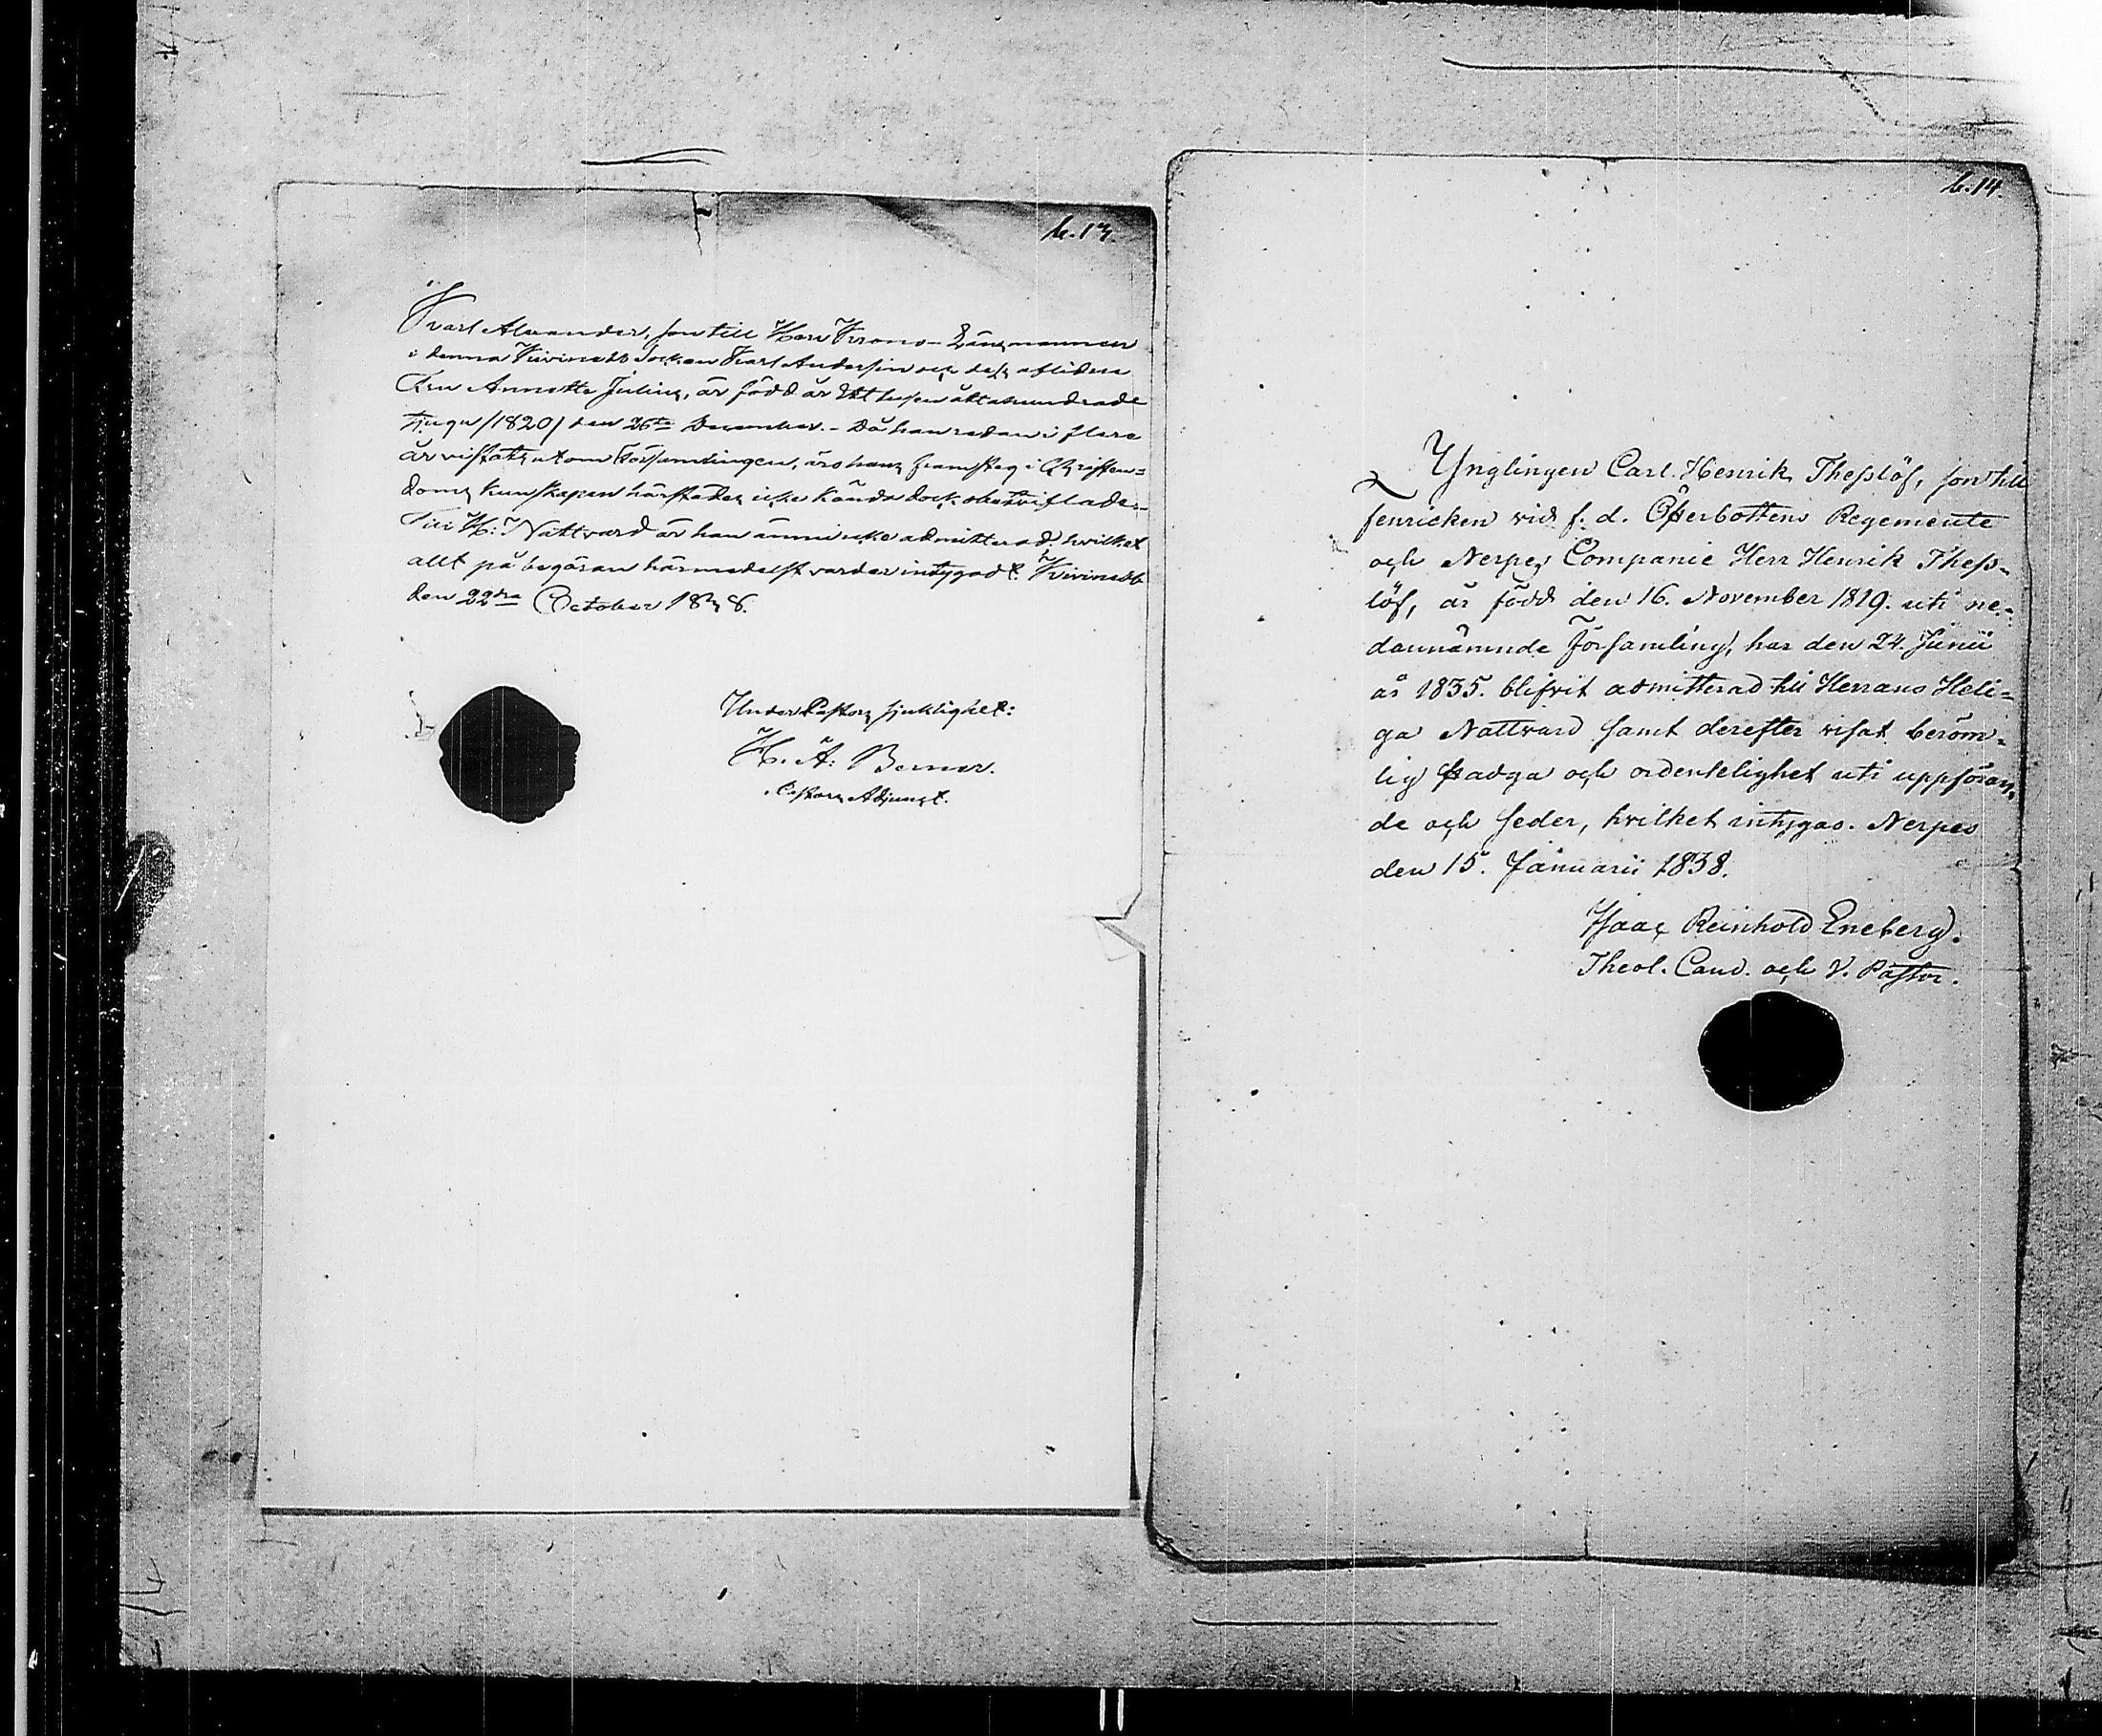 b.13.
Karl Alexander, son till Herr Krono-Länsmannen
i denna Kivinebb Socken Karl Andersin och dess aflidna
Fru Annette Julin, är född år Ett tusen åttahundrade
tjugu /1820/ den 26te December. Då han redan i flera
år vistats utom Församlingen, äro hans framsteg i Christen=
doms kunskapen härstädes icke kända dock obetviflade.
Till H: Nattvard är han ännu icke admitterad, hvilket
allt på begäran härmedelst varder intygadt. Kivinebb
den 22dra October 1838.
Under Pastors sjuklighet:
K. A: Berner.
Pastors Adjunct.
b.14.
Ynglingen Carl Henrik Thesslöf, son till
fenricken vid f. d. Österbottens Regemente
och Nerpes Companie Herr Henrik Thess-
löf, är född den 16. November 1819. uti ne-
dannämnde Församling, har den 24. Junii
år 1835. blifvit admitterad till Herrans Heli=
ga Nattvard samt derefter visat beröm-
lig stadga och ordentelighet uti uppföran-
de och seder, hvilket intygas. Nerpes
den 15. Januarii 1838.
Isaac Reinhold Eneberg.
Theol. Cand. och V. Pastor.